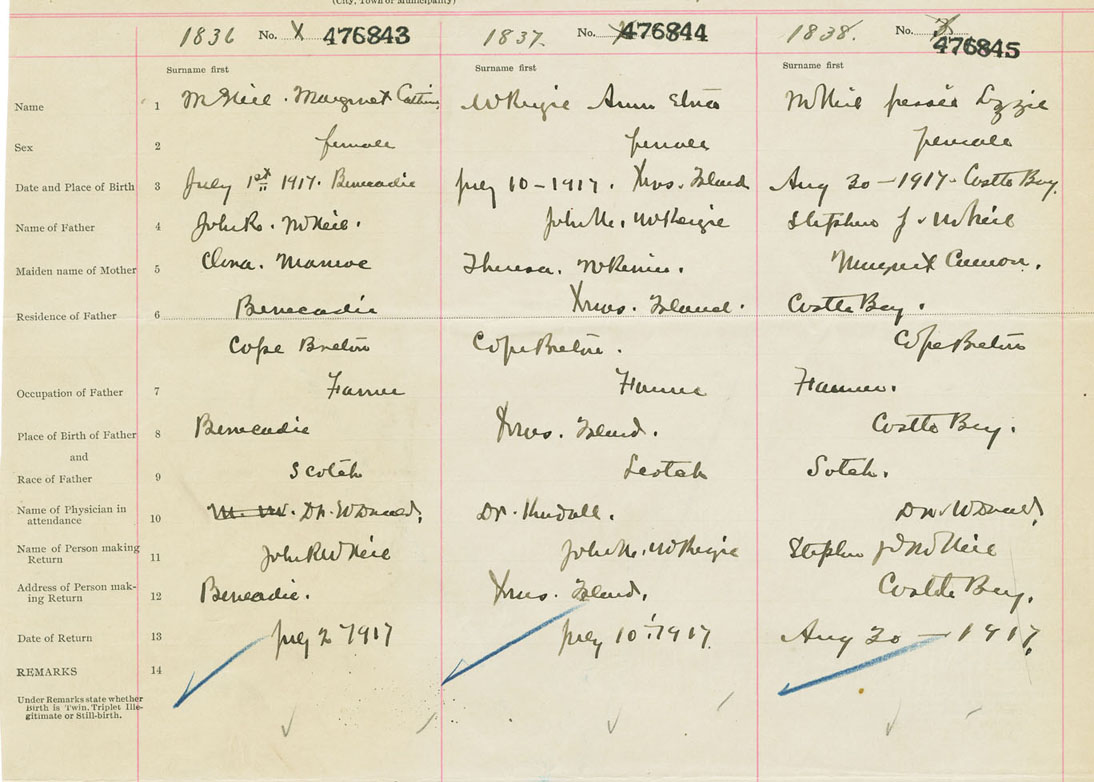 (City, Town or Municipality)
1836 No. X 476843
1837. No. 476844
1838. No. 3 476845
Surname first Surname first Surname first
Name 1 McNeil. Margaret McKenzie Ann McNeil Jessie Lizzie
Sex 2 female female female
Date and Place of Birth 3 July 1st 1917. Benecadie July 10-1917. Xmas. Island Aug 30-1917. Costto Bay.
Name of Father 4 John R. McNeil. John M. McKenzie Stephen J. McNeil
Maiden name of Mother 5 Munroe Theresa. Margaret
Residence of Father 6 Benecadie Xmas. Island. Costto Bay.
Cape Breton Cape Breton. Cape Breton
Occupation of Father 7 Farmer Farmer Farmer.
Place of Birth of Father 8 Benecadie Xmas. Island. Costto Bay.
and
Race of Father 9 Scotch Scotch Sotch.
Name of Physician in
attendance 10 Dr. McDonald, Dr. Dr. McDonald,
Name of Person making
Return 11 John R McNeil John M. McKenzie Stephen J McNeil
Address of Person mak-
ing Return 12 Benecadie. Xmas. Island. Costto Bay.
Date of Return 13 July 2-1917 July 10-1917. Aug 30-1917.
REMARKS 14
Under Remarks state whether
Birth is Twin, Triplet Ille-
gitimate or Still-birth.